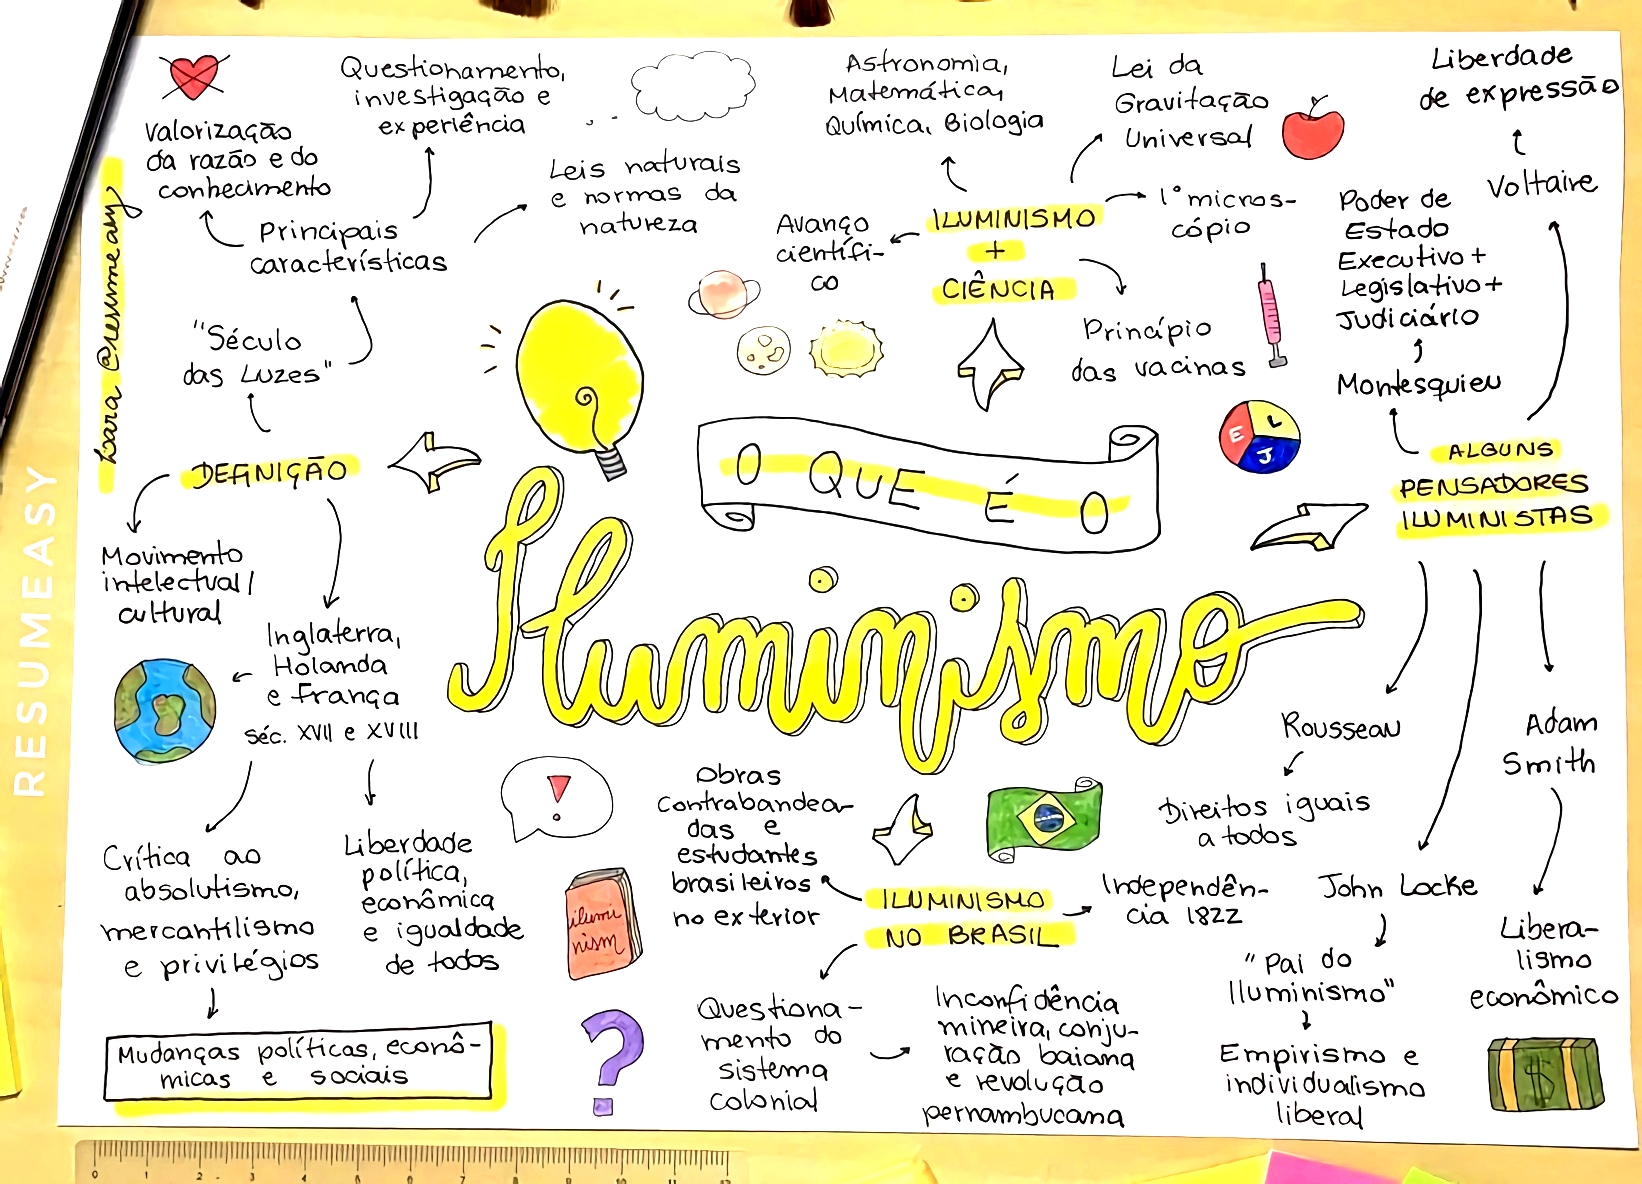 O QUE É O
Iluminismo
DEFINIÇÃO
Movimento
intelectual/
cultural
"Século
das Luzes"
Principais
características
Valorização
da razão e do
conhecimento
Questionamento,
investigação e
experiência
Leis naturais
e normas da
natureza
Inglaterra,
Holanda
e França
séc. XVII e XVIII
Crítica ao
absolutismo,
mercantilismo
e privilégios
Mudanças políticas, econô-
micas e sociais
Liberdade
política,
econômica
e igualdade
de todos
ILUMINISMO
+
CIÊNCIA
Avanço
científi-
co
Astronomia,
Matemática,
Química, Biologia
Lei da
Gravitação
Universal
1º micros-
cópio
Princípio
das vacinas
ALGUNS
PENSADORES
ILUMINISTAS
Montesquieu
Poder de
Estado
Executivo +
Legislativo +
Judiciário
E L
J
Voltaire
Liberdade
de expressão
Rousseau
Direitos iguais
a todos
John Locke
"Pai do
Iluminismo"
Empirismo e
individualismo
liberal
Adam
Smith
Libera-
lismo
econômico
$
ILUMINISMO
NO BRASIL
Obras
contrabandea-
das e
estudantes
brasileiros
no exterior
Independên-
cia 1822
Questiona-
mento do
sistema
colonial
Inconfidência
mineira, conju-
ração baiana
e revolução
pernambucana
ilumi
nism
Lara @resumeasy
RESUMEASY
0 1 2 3 4 5 6 7 8 9 10 11